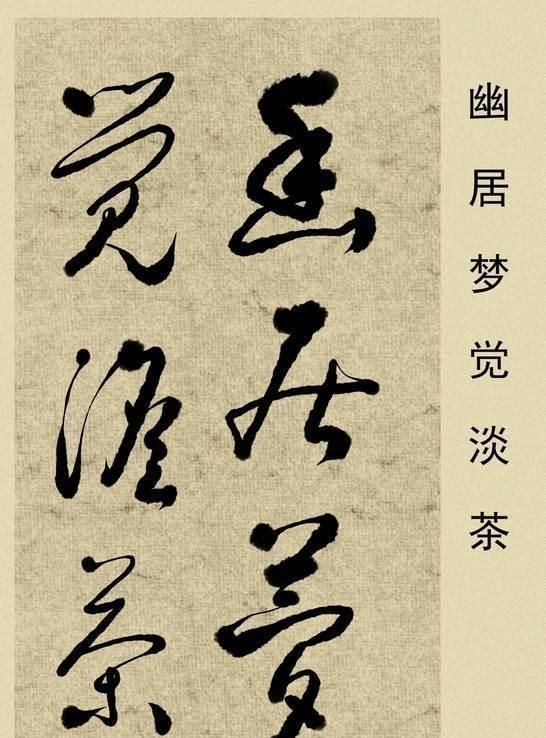 幽居梦觉淡茶
幽居梦
觉淡茶